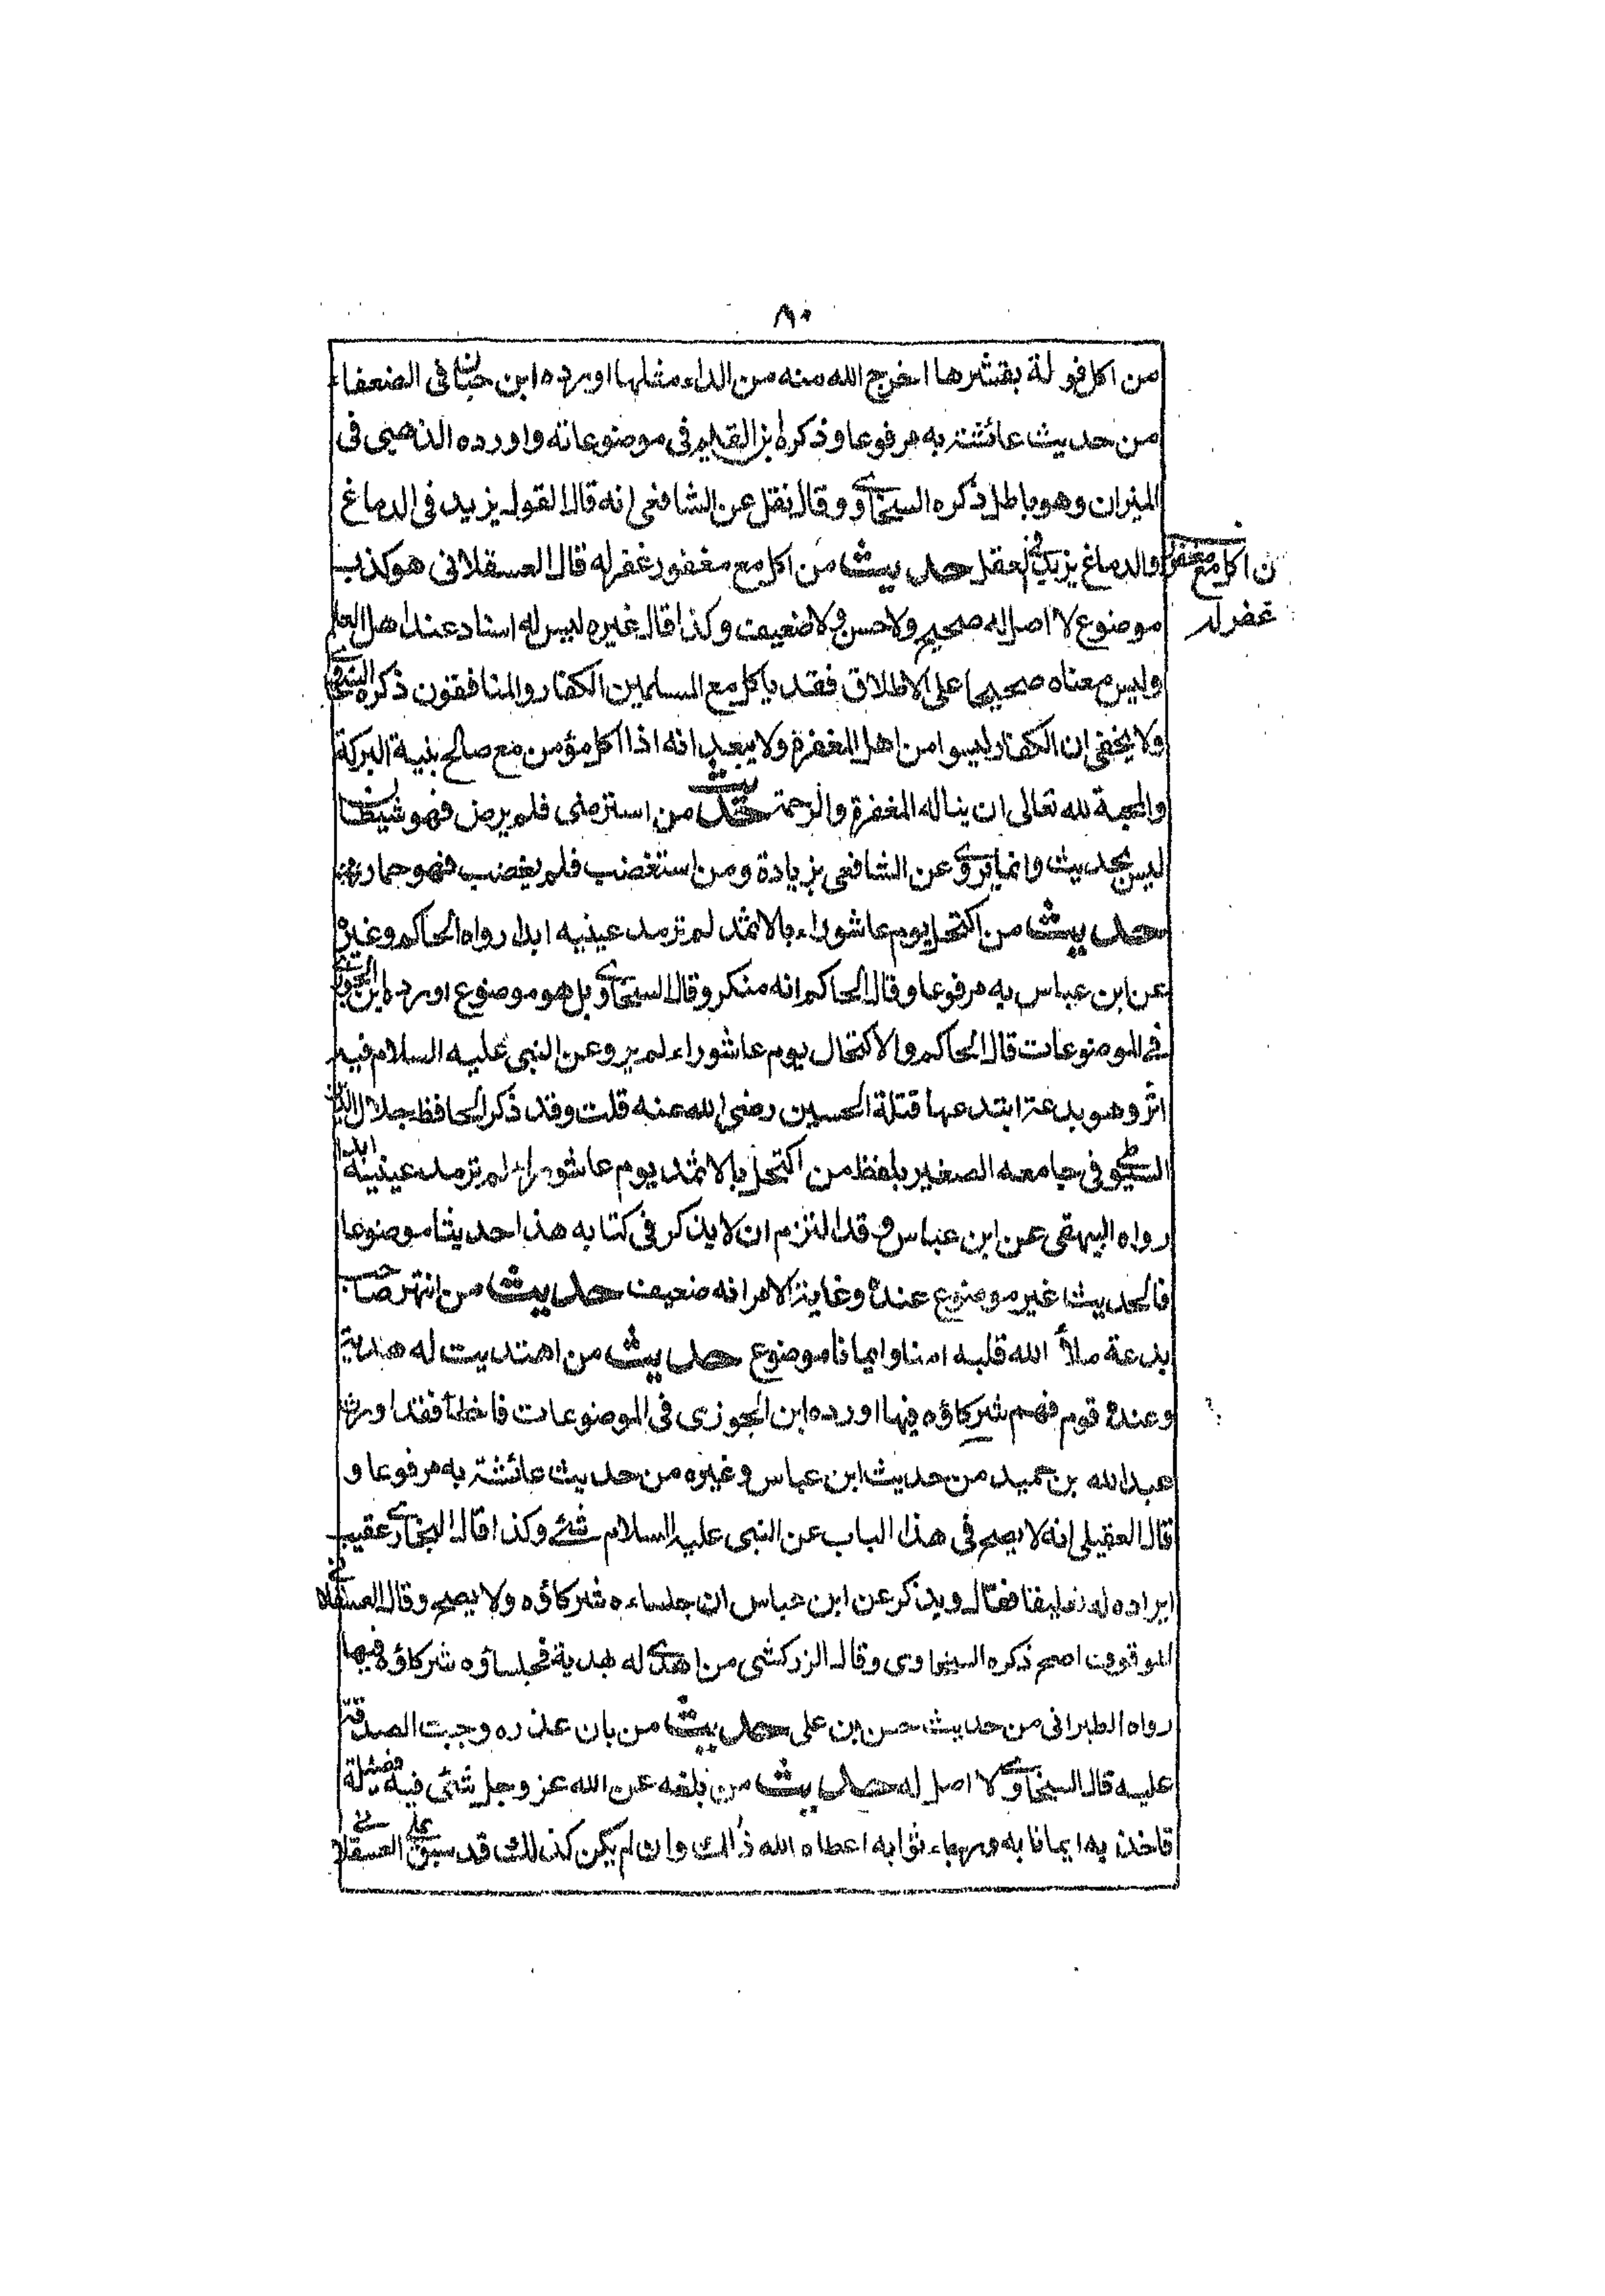 ٨٠
من اكل فولة بقشرها اخرج الله منه من الداء مثلها اورده ابن حبان فى الضعفاء
من حديث عائشة به مرفوعا وذكره ابن القيم فى موضوعاته واورده الذهبى فى
الميزان وهو باطل ذكره السخاوى وقال نقل عن الشافعى انه قال الفول يزيد فى الدماغ
والدماغ يزيد فى العقل حديث من اكل مع مغفور غفر له قال العسقلانى هو كذب
ن اكل مع مغفور
غفر له
موضوع لا اصل له صحيح ولا حسن ولا ضعيف وكذا قال غيره ليس له اسناد عند اهل العلم
وليس معناه صحيحا على الاطلاق فقد ياكل مع المسلمين الكفار والمنافقون ذكره السخاوى
ولا يخفى ان الكفار ليسوا من اهل المغفرة ولا يبعد انه اذا اكل مؤمن مع صالح بنية البركة
والمحبة لله تعالى ان يناله المغفرة والرحمة حديث من استرضى فلم يرض فهو شيطان
ليس بحديث وانما يروى عن الشافعى بزيادة ومن استغضب فلم يغضب فهو حمار
حديث من اكتحل يوم عاشوراء بالاثمد لم ترمد عينيه ابدا رواه الحاكم وغيره
عن ابن عباس به مرفوعا وقال الحاكم انه منكر وقال السخاوى بل هو موضوع اورده ابن الجوزى
فى الموضوعات قال الحاكم والاكتحال يوم عاشوراء لم يرو عن النبى عليه السلام فيه
اثر وهو بدعة ابتدعها قتلة الحسين رضى الله عنه قلت وقد ذكر الحافظ جلال الدين
السيوطى فى جامعه الصغير بلفظ من اكتحل بالاثمد يوم عاشوراء لم ترمد عينيه ابدا
رواه البيهقى عن ابن عباس وقد التزم ان لا يذكر فى كتابه هذا حديثا موضوعا
فالحديث غير موضوع عنده وغاية الامر انه ضعيف حديث من انتهر صاحب
بدعة ملأ الله قلبه امنا وايمانا موضوع حديث من اهتديت له هدية
وعنده قوم فهم شركاؤه فيها اورده ابن الجوزى فى الموضوعات فاخطأ فقد اورده
عبد الله بن حميد من حديث ابن عباس وغيره من حديث عائشة به مرفوعا و
قال العقيلى انه لا يصح فى هذا الباب عن النبى عليه السلام شئ وكذا قال البخارى عقيب
ايراده له تعليقا فقال ويذكر عن ابن عباس ان جلساءه شركاؤه ولا يصح وقال العسقلانى
الموقوف اصح ذكره السخاوى وقال الزركشى من اهدى له هدية فجلساؤه شركاؤه فيها
رواه الطبرانى من حديث حسن بن على حديث من بان عذره وجبت الصدقة
عليه قال السخاوى لا اصل له حديث من بلغه عن الله عز وجل شئ فيه فضيلة
فاخذ به ايمانا به ورجاء ثوابه اعطاه الله ذالك وان لم يكن كذلك قد سبق العسقلانى